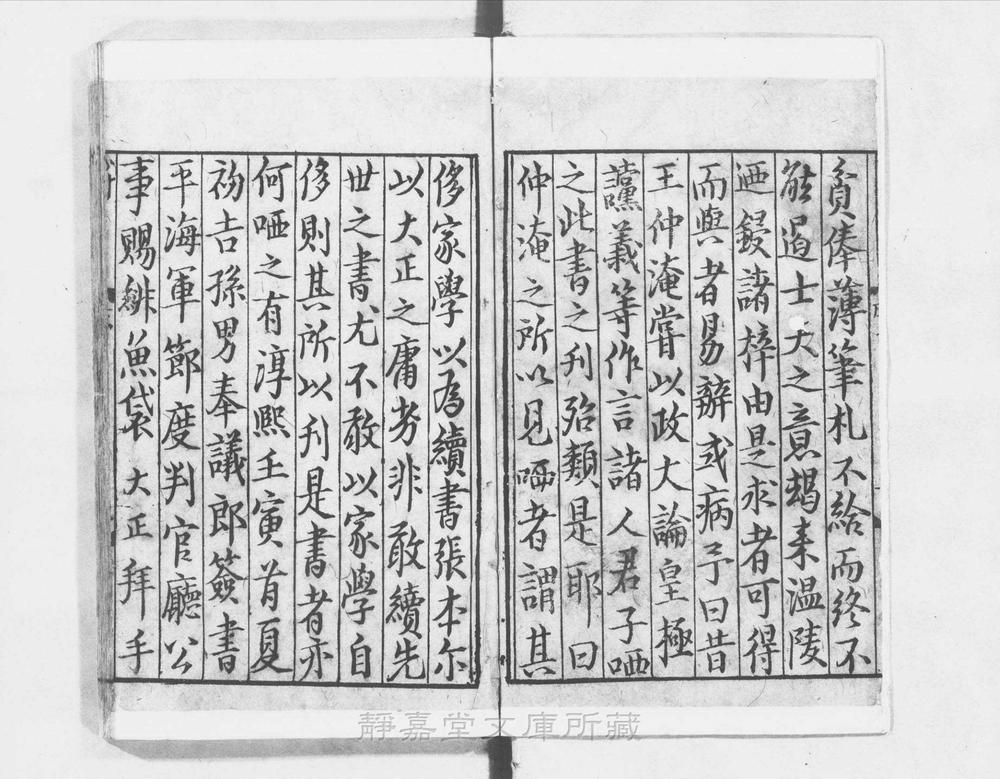 貧俸薄筆札不給而終不
能遏士夫之意朅来温陵
迺鋟諸梓由是求者可得
而與者易辭或病予曰昔
王仲淹嘗以政大論皇極
讜義等作言諸人君子哂
之此書之刊殆類是耶曰
仲淹之所以見哂者謂其
侈家學以為續書張本尔
以大正之庸劣非敢續先
世之書尤不敢以家學自
侈則其所以刊是書者亦
何哂之有淳熙壬寅首夏
初吉孫男奉議郎簽書
平海軍節度判官廳公
事賜緋魚袋 大正拜手
靜嘉堂文庫所藏